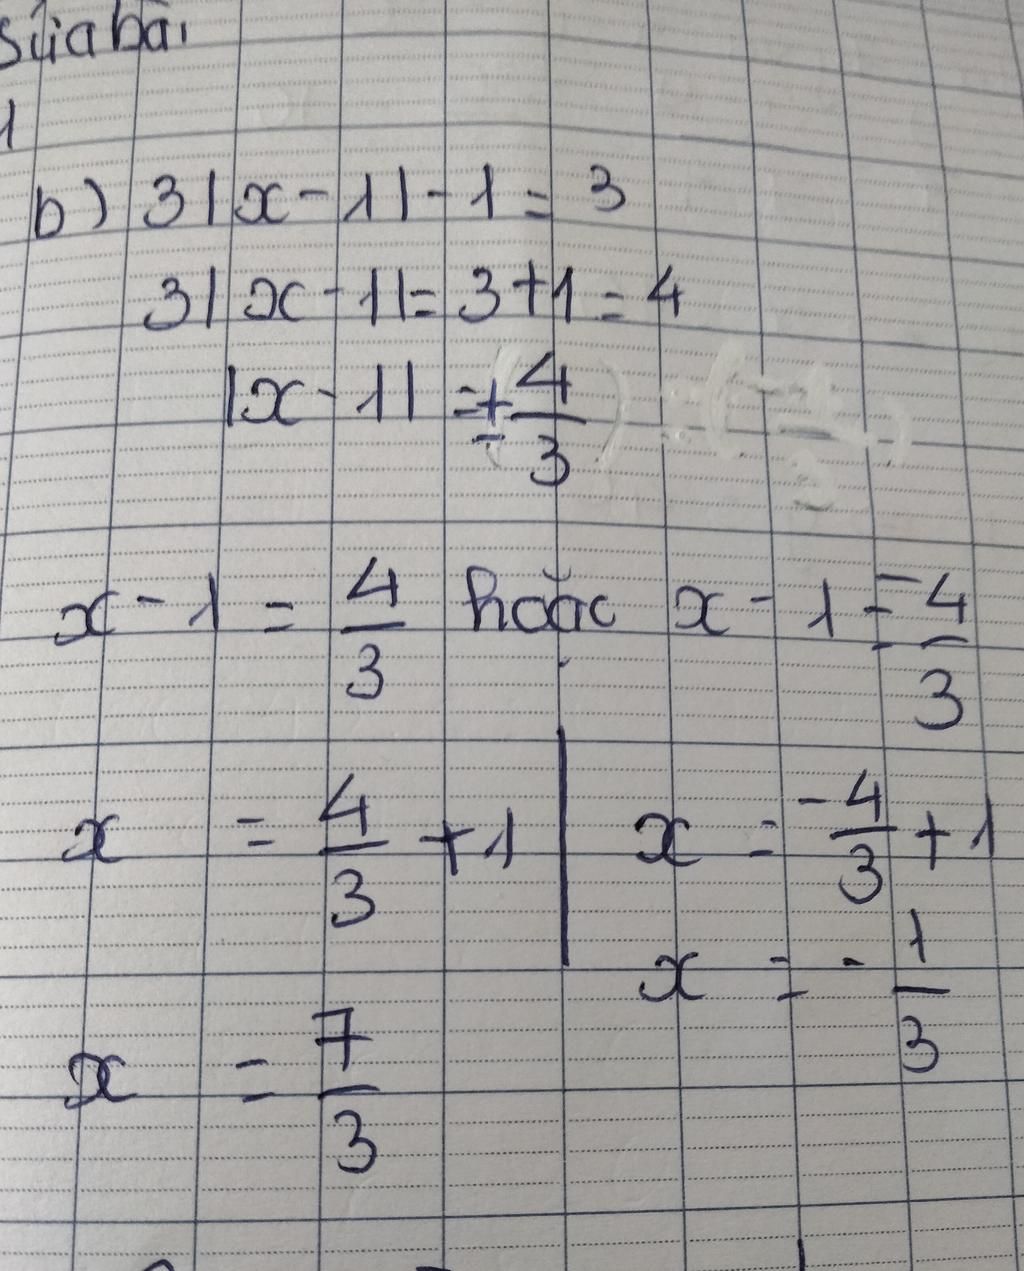 Sửa bài
1
b) 3|x - 1| - 1 = 3
3|x - 1| = 3 + 1 = 4
|x - 1| = ± 4/3
x - 1 = 4/3 hoặc x - 1 = -4/3
x = 4/3 + 1 | x = -4/3 + 1
x = - 1/3
x = 7/3